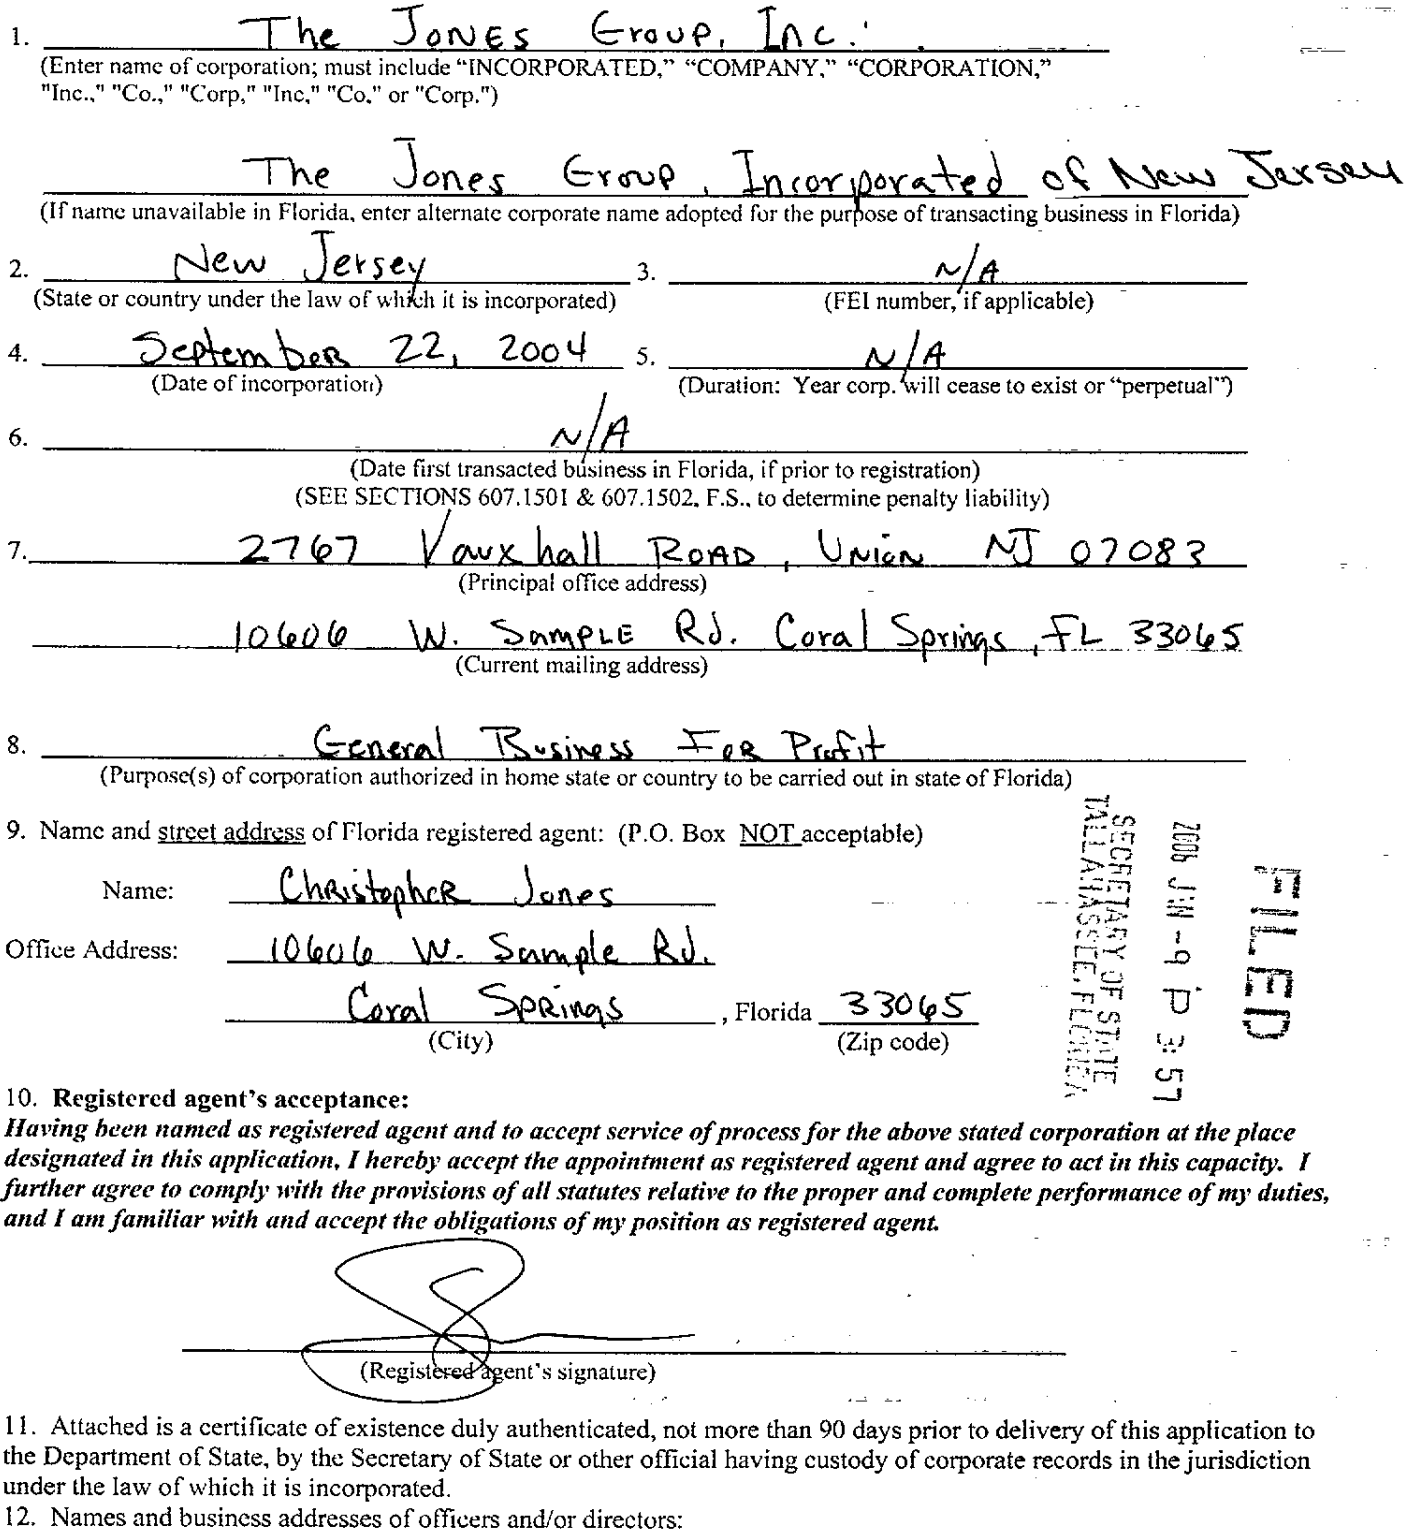 1. The Jones Group, Inc.
(Enter name of corporation; must include “INCORPORATED,” “COMPANY,” “CORPORATION,”
"Inc.," "Co.," "Corp," "Inc," "Co," or "Corp.")
The Jones Group, Incorporated of New Jersey
(If name unavailable in Florida, enter alternate corporate name adopted for the purpose of transacting business in Florida)
2. New Jersey 3. N/A
(State or country under the law of which it is incorporated) (FEI number, if applicable)
4. September 22, 2004 5. N/A
(Date of incorporation) (Duration: Year corp. will cease to exist or “perpetual”)
6. N/A
(Date first transacted business in Florida, if prior to registration)
(SEE SECTIONS 607.1501 & 607.1502, F.S., to determine penalty liability)
7. 2767 Vauxhall Road, Union NJ 07083
(Principal office address)
10606 W. Sample Rd. Coral Springs, FL 33065
(Current mailing address)
8. General Business For Profit
(Purpose(s) of corporation authorized in home state or country to be carried out in state of Florida)
9. Name and street address of Florida registered agent: (P.O. Box NOT acceptable)
Name: Christopher Jones
Office Address: 10606 W. Sample Rd.
Coral Springs, Florida 33065
(City) (Zip code)
FILED
2006 JUN -9 P 3:57
SECRETARY OF STATE
TALLAHASSEE, FLORIDA
10. Registered agent’s acceptance:
Having been named as registered agent and to accept service of process for the above stated corporation at the place
designated in this application, I hereby accept the appointment as registered agent and agree to act in this capacity. I
further agree to comply with the provisions of all statutes relative to the proper and complete performance of my duties,
and I am familiar with and accept the obligations of my position as registered agent.
(Registered agent’s signature)
11. Attached is a certificate of existence duly authenticated, not more than 90 days prior to delivery of this application to
the Department of State, by the Secretary of State or other official having custody of corporate records in the jurisdiction
under the law of which it is incorporated.
12. Names and business addresses of officers and/or directors: